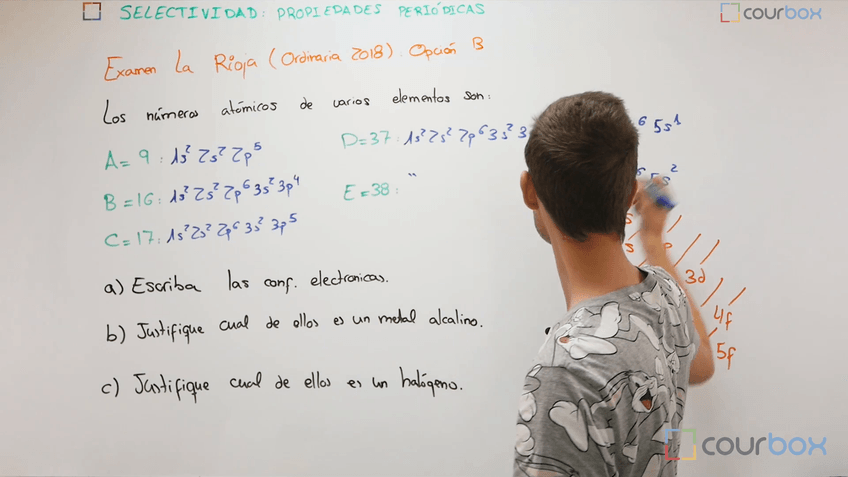 SELECTIVIDAD: PROPIEDADES PERIÓDICAS
courbox
Examen La Rioja (Ordinaria 2018). Opción B
Los números atómicos de varios elementos son:
A = 9 : 1s² 2s² 2p⁵
B = 16 : 1s² 2s² 2p⁶ 3s² 3p⁴
C = 17 : 1s² 2s² 2p⁶ 3s² 3p⁵
D = 37 : 1s² 2s² 2p⁶ 3s² 3 ⁶ 5s¹
E = 38 : " ⁶ 5s²
3d
4f
5f
a) Escriba las conf. electronicas.
b) Justifique cual de ellos es un metal alcalino.
c) Justifique cual de ellos es un halógeno.
courbox